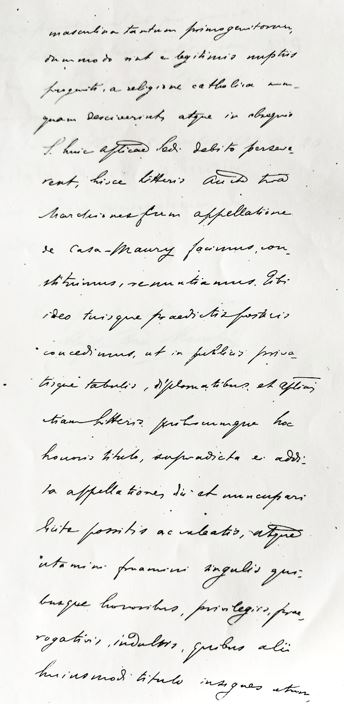 masculina tantum primogenitorum,
dummodo sint e legitimis nuptiis
progeniti, a religione catholica nun-
quam desciverint atque in obsequio
S. huic Aplicae Sedi debito perseve-
rent, hisce litteris Auctte Nra
Marchionem cum appellatione
de Casa-Maury facimus, con-
stituimus, renuntiamus. Tibi
ideo tuisque praedictis posteris
concedimus, ut in publicis priva-
tisque tabulis, diplomatibus et Aplicis
etiam litteris quibuscumque hoc
honoris titulo, supradicta ei addi-
ta appellatione, dici et nuncupari
licite possitis ac valeatis, atque
utamini fruamini singulis qui-
busque honoribus, privilegiis, prae-
rogativis, indultis, quibus alii
huiusmodi titulo insignes utun-